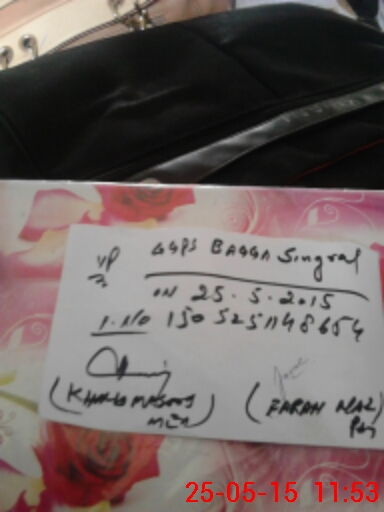 VP GGPS BAGGA Singral
ON 25.5.2015
I.NO 1505251148654
(KHALID MASOOD (FARAH NAZ)
MEA)
25-05-15 11:53